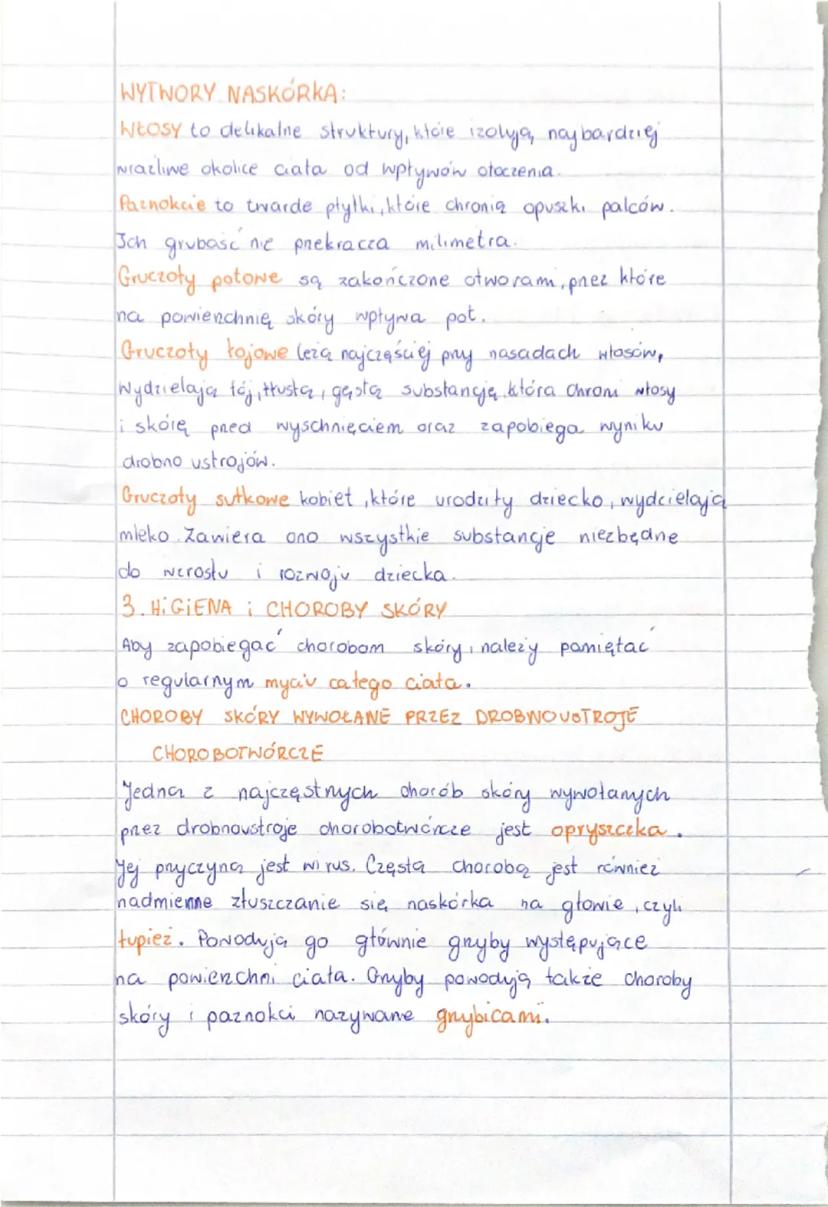 WYTWORY NASKÓRKA:
WŁOSY to delikalne struktury, które izolyją naybardziej
wrażliwe okolice ciała od wpływów otoczenia.
Paznokcie to twarde płytki, które chronią opuszki palców.
Ich grubość nie przekracza milimetra.
Gruczoły potowe są zakończone otworami, przez które
na powierzchnię skóry wpływa pot.
Gruczoły łojowe leżą najczęściej przy nasadach włosów,
wydzielają łój, tłustą, gęstą substancję która chroni włosy
i skórę przed wyschnięciem oraz zapobiega wyniku
drobno ustrojów.
Gruczoły sutkowe kobiet, które urodziły dziecko, wydzielają
mleko. Zawiera ono wszystkie substancje niezbędne
do wzrostu i rozwoju dziecka.
3. HiGiENA i CHOROBY SKÓRY
Aby zapobiegać chorobom skóry, należy pamiętać
o regularnym myciu całego ciała.
CHOROBY SKÓRY WYWOŁANE PRZEZ DROBNOUSTROJE
CHOROBOTWÓRCZE
Jedną z najczęstrzych chorób skóry wywołanych
przez drobnoustroje chorobotwórcze jest opryszczka.
Jej przyczyną jest wirus. Częstą chorobą jest również
nadmienne złuszczanie się naskórka na głowie, czyli
łupież. Powodują go głównie grzyby występujące
na powierzchni ciała. Grzyby powodują także choroby
skóry i paznokci nazywane grzybicami.